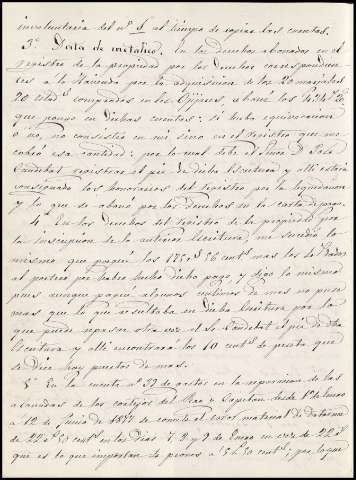 involuntaria del nº 4 al tiempo de copiar las cuentas.
3ª Data de metalico, En los derechos abonados en el
registro de la propiedad por los derechos correspondien
tes á la Hacienda por la adquisicion de los
comprados en los aboné los
que pongo en dichas cuentas: si hubo equivocacion
ó no, no consistió en mi sino en el registro que me
cobró esa cantidad: por lo cual debe el Señor D. José
Candebat registrar el pié de dicha Escritura y alli estarán
consignado los honorarios del registro por la liquidacion
y lo que se abonó por los derechos en la carta de pago.
4ª En los derechos del registro de la propiedad por
la inscripcion de la anterior Escritura, me sucedió lo
mismo que pagué los 175 56 centˢ mas los dados
al portero por haber hecho dicho pago, y digo lo mismo
pues aunque pagué algunos centimos de mas no puse
mas que lo que resultaba en dicha Escritura por lo
que puede repasar otra vez el Sr Candebat el pié de dicha
Escritura y alli encontrará los 10 centˢ de peseta que
se dice hay puestos de mas.
5ª En la cuenta nº 33 de gastos en la reposicion de las
azoteas de los cortijos del Rac y Capitan desde 1º de Enero
á 12 de Junio de 1877 se comete el error material de datarme
de 22 50 centˢ en los dias 7, 8 y 9 de Enero en vez de 22
que es lo que importan los peones á 5 50 centˢ; por lo que